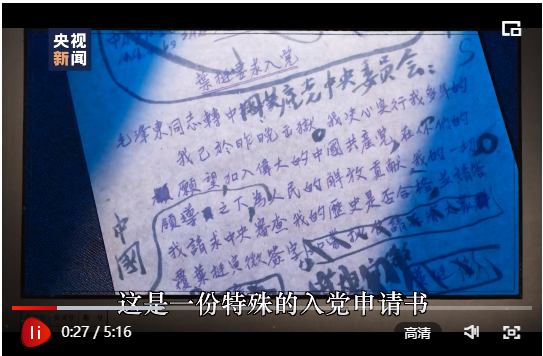 央视
新闻
葉挺要求入党
毛泽東同志轉中國共產党中央委员会：
我已於昨晚出獄，我决心实行我多年的
願望，加入偉大的中國共產党，在你们的
領導之下，為人民的解放贡献我的一切，
我請求中央審查我的歷史是否合格，並請答
覆。葉挺寅微
中國
这是一份特殊的入党申请书
0:27 / 5:16
高清